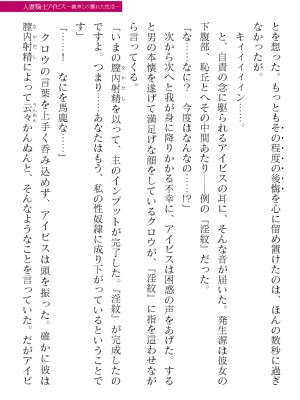 人妻騎士アイビス
とを想った。もっともその程度の後悔を心に留め置けたのは、ほんの数秒に過ぎ
なかったが。
キィィィィィン……。
と、自責の念に駆られるアイビスの耳に、そんな音が届いた。発生源は彼女の
下腹部、恥丘とへその中間あたり――例の『淫紋』だった。
「な……なに？　今度はなんなの……!?」
次から次へと我が身に降りかかる不幸に、アイビスは困惑の声をあげた。する
と男の本懐を遂げて満足げな顔をしているクロウが、『淫紋』に指を這わせなが
ら言ってくる。
「いまの膣内射精を以って、主のインプットが完了した。『淫紋』が完成したの
ですよ。つまり……あなたはもう、私の性奴隷に成り下がっているということで
す」
「……！　なにを馬鹿な……」
クロウの言葉を上手く呑み込めず、アイビスは頭を振った。確かに彼は
膣内射精によって云々かんぬんと、そんなようなことを言っていた。だがアイビ